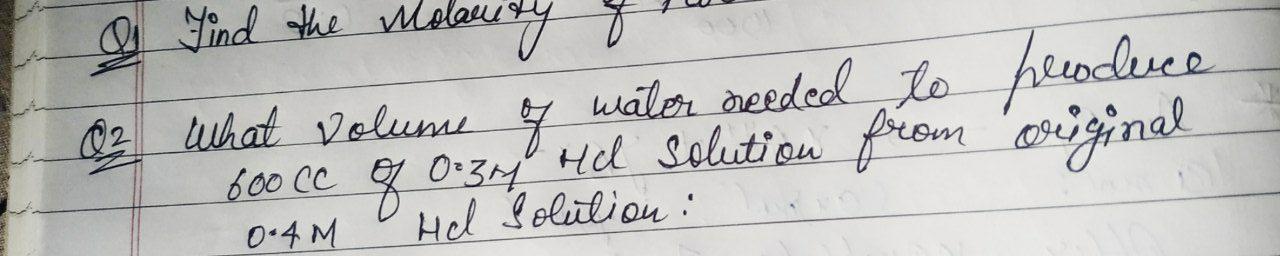 Q1 Find the Molarity of
Q2 What Volume of water needed to produce
600 CC of 0.3M Hcl Solution from original
0.4M Hcl Solution: